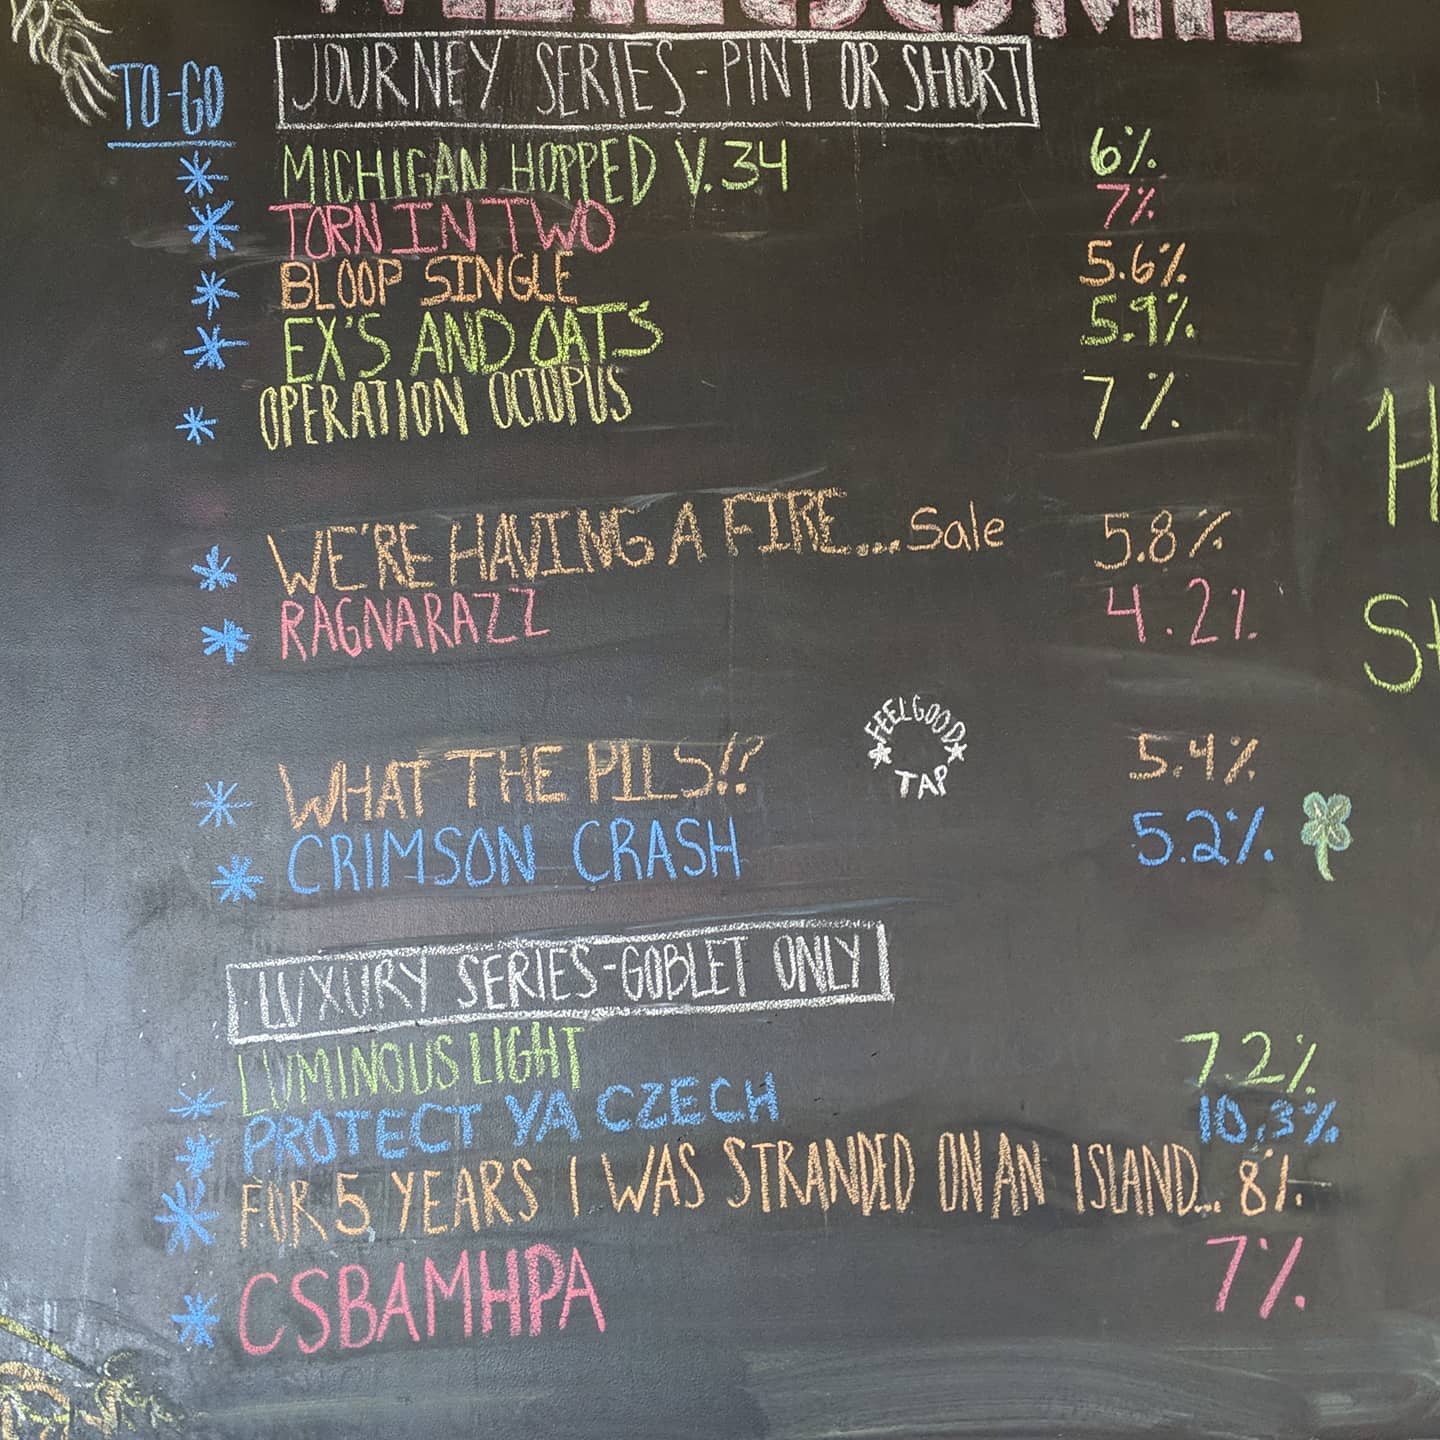 TO-GO
JOURNEY SERIES-PINT OR SHORT
* MICHIGAN HOPPED V.34 6%
* TORN IN TWO 7%
* BLOOP SINGLE 5.6%
* EX'S AND OATS 5.9%
* OPERATION OCTOPUS 7%
* WE'RE HAVING A FIRE...Sale 5.8%
* RAGNARAZZ 4.2%
FEELGOOD
TAP
* WHAT THE PILS!? 5.4%
* CRIMSON CRASH 5.2%
LUXURY SERIES-GOBLET ONLY
* LUMINOUS LIGHT 7.2%
* PROTECT YA CZECH 10.3%
* FOR 5 YEARS I WAS STRANDED ON AN ISLAND... 8%
* CSBAMHPA 7%